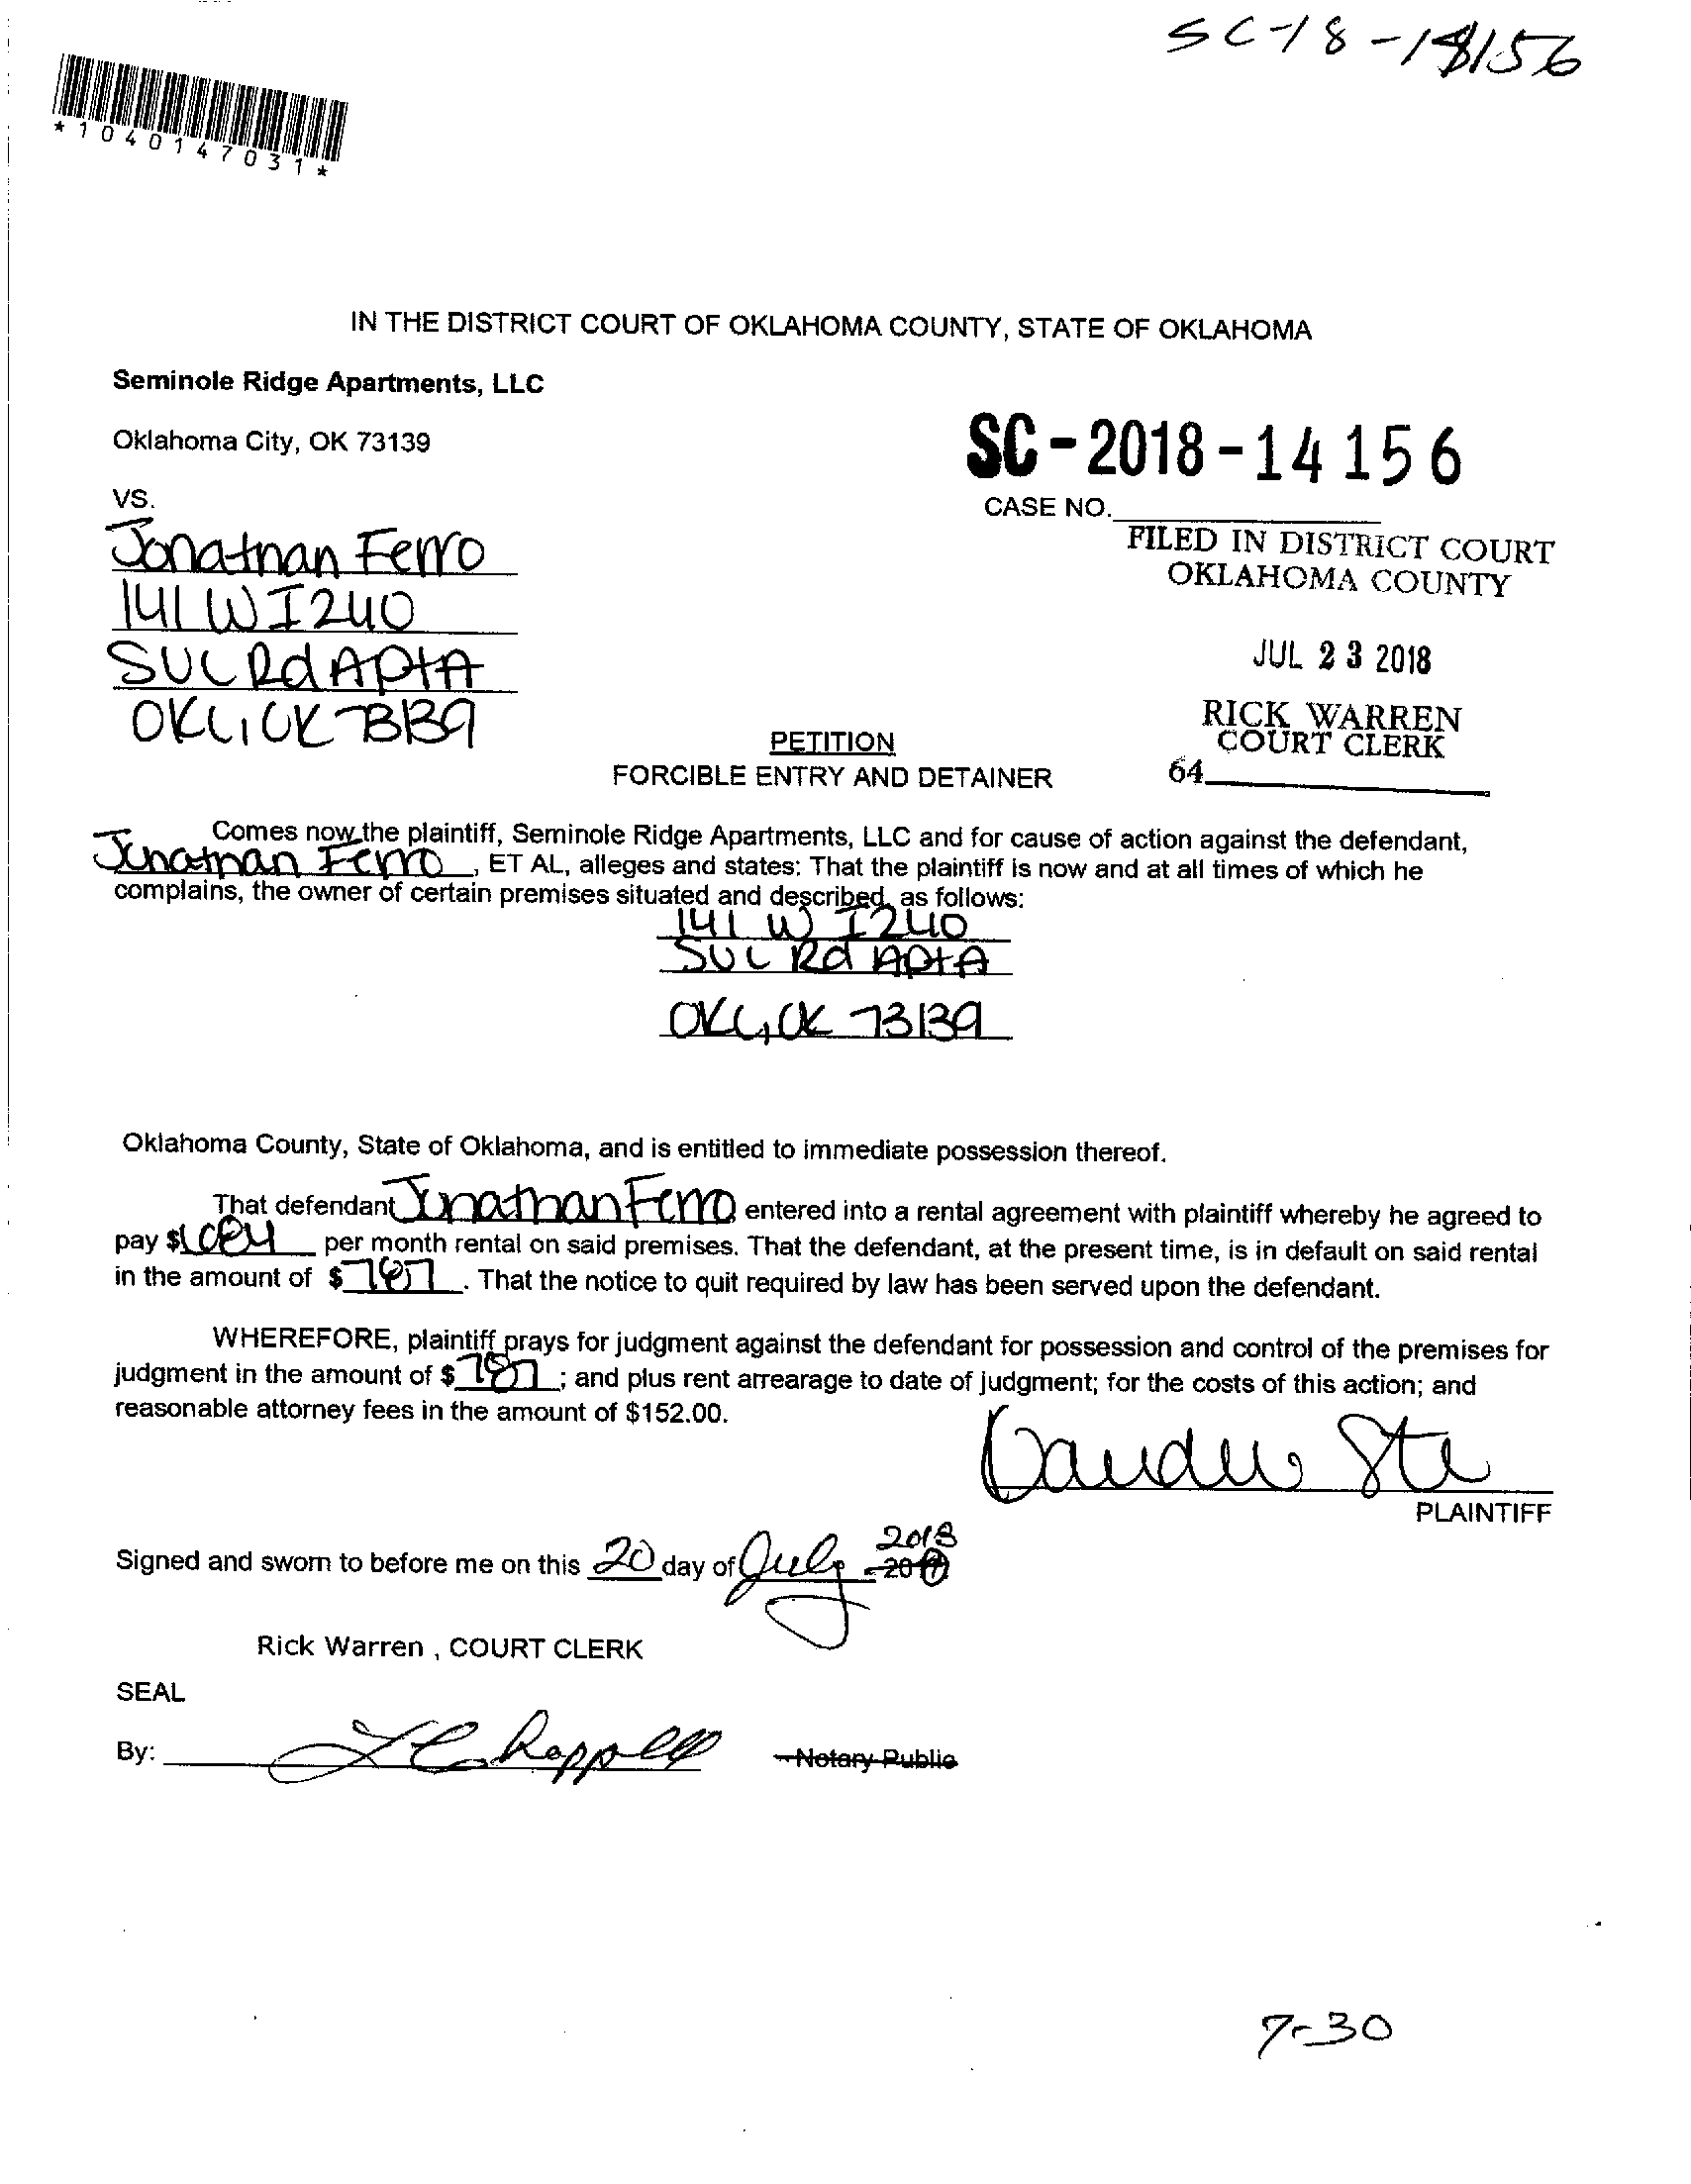 SC-18-14156
*1040147031*
IN THE DISTRICT COURT OF OKLAHOMA COUNTY, STATE OF OKLAHOMA
Seminole Ridge Apartments, LLC
Oklahoma City, OK 73139
SC-2018-14156
VS.
CASE NO.
Jonathan Ferro
FILED IN DISTRICT COURT
OKLAHOMA COUNTY
141 W I240
JUL 23 2018
SVC Rd Apt A
OKC, OK 73139
RICK WARREN
COURT CLERK
64
PETITION
FORCIBLE ENTRY AND DETAINER
Comes now the plaintiff, Seminole Ridge Apartments, LLC and for cause of action against the defendant,
Jonathan Ferro, ET AL, alleges and states: That the plaintiff is now and at all times of which he
complains, the owner of certain premises situated and described, as follows:
141 W I240
SVC Rd Apt A
OKC, OK 73139
Oklahoma County, State of Oklahoma, and is entitled to immediate possession thereof.
That defendant Jonathan Ferro entered into a rental agreement with plaintiff whereby he agreed to
pay $ per month rental on said premises. That the defendant, at the present time, is in default on said rental
in the amount of $787. That the notice to quit required by law has been served upon the defendant.
WHEREFORE, plaintiff prays for judgment against the defendant for possession and control of the premises for
judgment in the amount of $787; and plus rent arrearage to date of judgment; for the costs of this action; and
reasonable attorney fees in the amount of $152.00.
PLAINTIFF
2018
Signed and sworn to before me on this 20 day of July
Rick Warren , COURT CLERK
SEAL
By:
Notary Public
7-30